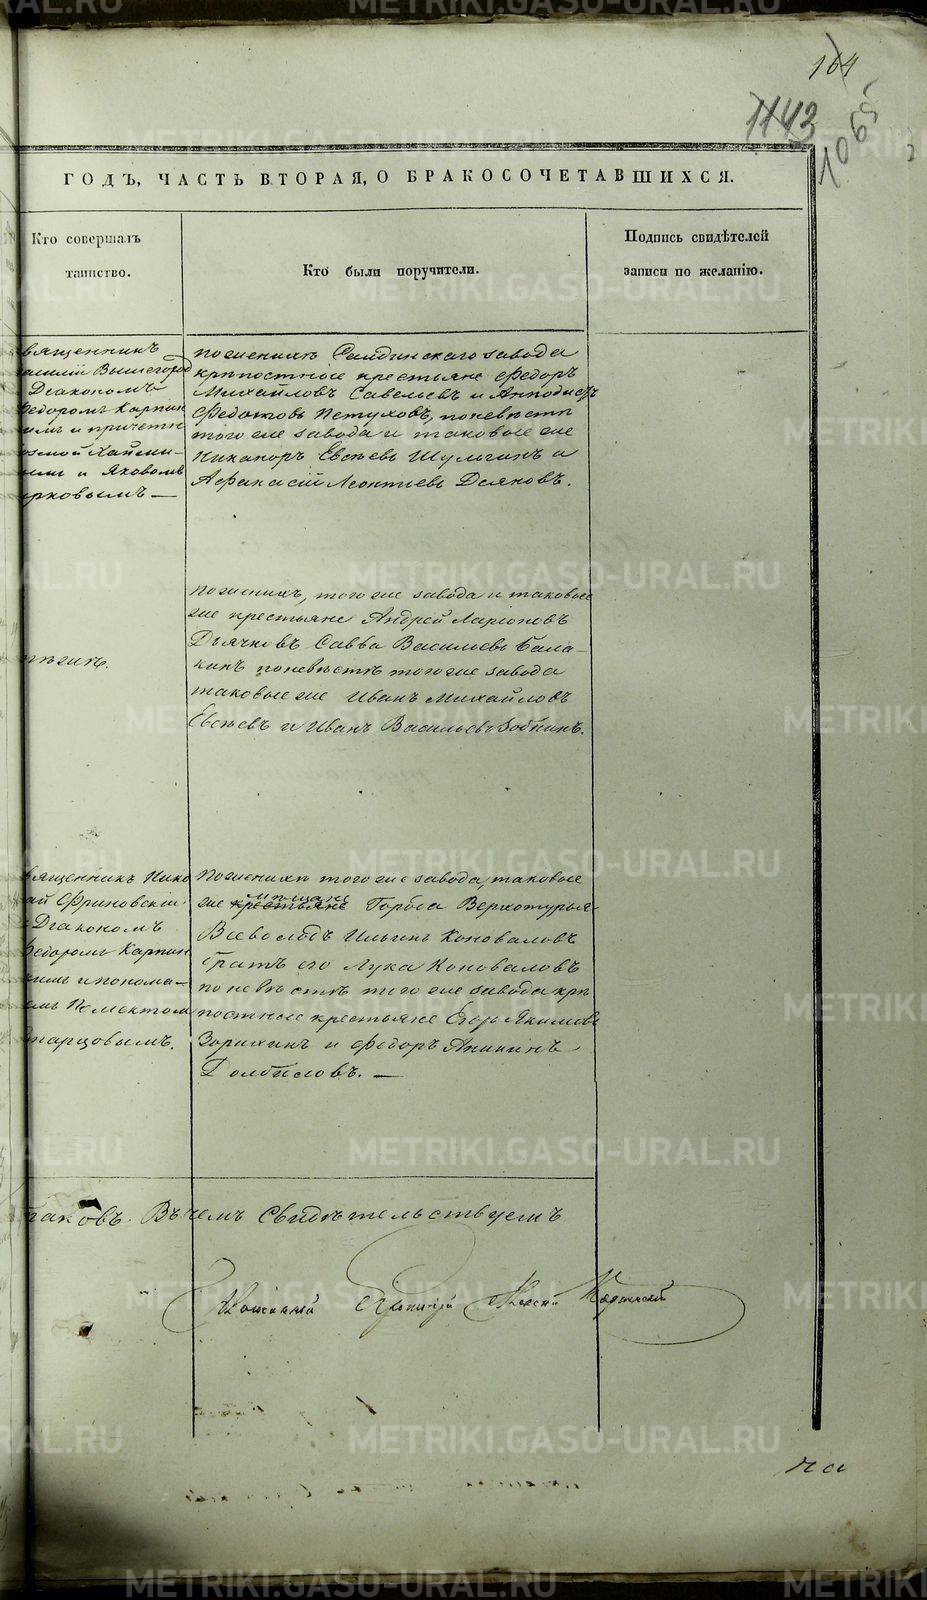 164
1143
1065
ГОДЪ, ЧАСТЬ ВТОРАЯ, О БРАКОСОЧЕТАВШИХСЯ.
Кто совершалъ
таинство.
Кто были поручители.
Подпись свидѣтелей
записи по желанію.
вященникъ
Діакономъ
едоромъ Карпин
и Яковомъ
поженихѣ Салдинскаго завода
крѣпостные крестьяне Федоръ
Михайловъ Савельевъ и
Федотовъ Петуховъ, поневѣстѣ
того же завода и таковые же
Никаноръ Евсѣевъ Шульгинъ а
Афанасій Леонтіевъ Деяновъ.
поженихѣ, того же завода и таковые
же крестьяне Андрей Ларіоновъ
Дьячковъ Савва Васильевъ Бала-
кинъ поневѣстѣ того же завода
таковые же Иванъ Михайловъ
Евсѣевъ и Иванъ Васильевъ
вященникъ Нико
ай
Діакономъ
едоромъ Карпин
имъ и понома-
емъ
тарцовымъ.
Поженихѣ того же завода, таковые
мѣщане
же крестьяне Города Верхотурья
Всеволодъ Ильинъ Коноваловъ
братъ его Лука Коноваловъ
поневѣстѣ того же завода крѣ
постные крестьяне Егоръ Якимовъ
Зорихинъ и Федоръ Аникинъ
аковъ. Въ чемъ Свидѣтельствуемъ
на
METRIKI.GASO-URAL.RU